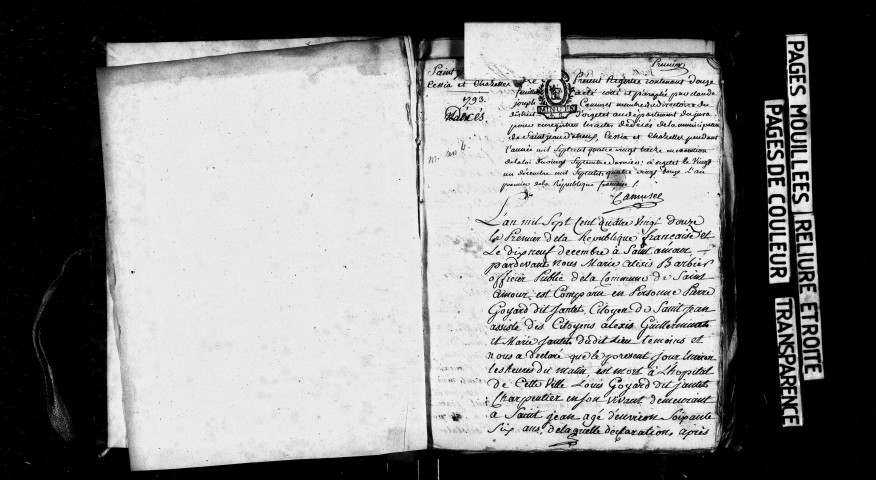 Premier
Saint
Cessia et Chazelles
1793.
Décès
Présent Registre contenant douze
feuillets coté et paraphé par claude
joseph Camuset membre du directoire du
district d'orgelet au département du jura
pour enregistrer les actes de décès de la municipalité
de Saint jean d'etreux, Cessia et Chazelles pendant
l'année mil Sept cent quatre vingt treize en execution
de la loi du vingt Septembre dernier, à orgelet le vingt
un décembre mil Sept cent quatre vingt douze L'an
premier de la République françoise /.
Camuset
L'an mil Sept Cent Quatre Vingt douze
le Premier de la Republique française et
Le dix neuf decembre à Saint amour
pardevant nous Marie alexis Barbier
officier Public de la Commune de Saint
amour, est Comparu en Personne Pierre
Goyard dit Jantet, Citoyen de Saint jean
assisté des Citoyens alexis Guillerminet
et Marie Jantet dudit Lieu temoins et
nous a declaré que le present jour Environ
les heures du matin, est mort à L'hopital
de Cette Ville Louis Goyard dit jantet
Charpentier en son vivant demeurant
à Saint jean agé d'environ Soixante
Six ans, de laquelle declaration, après
PAGES MOUILLEES RELIURE ETROITE
PAGES DE COULEUR TRANSPARENCE